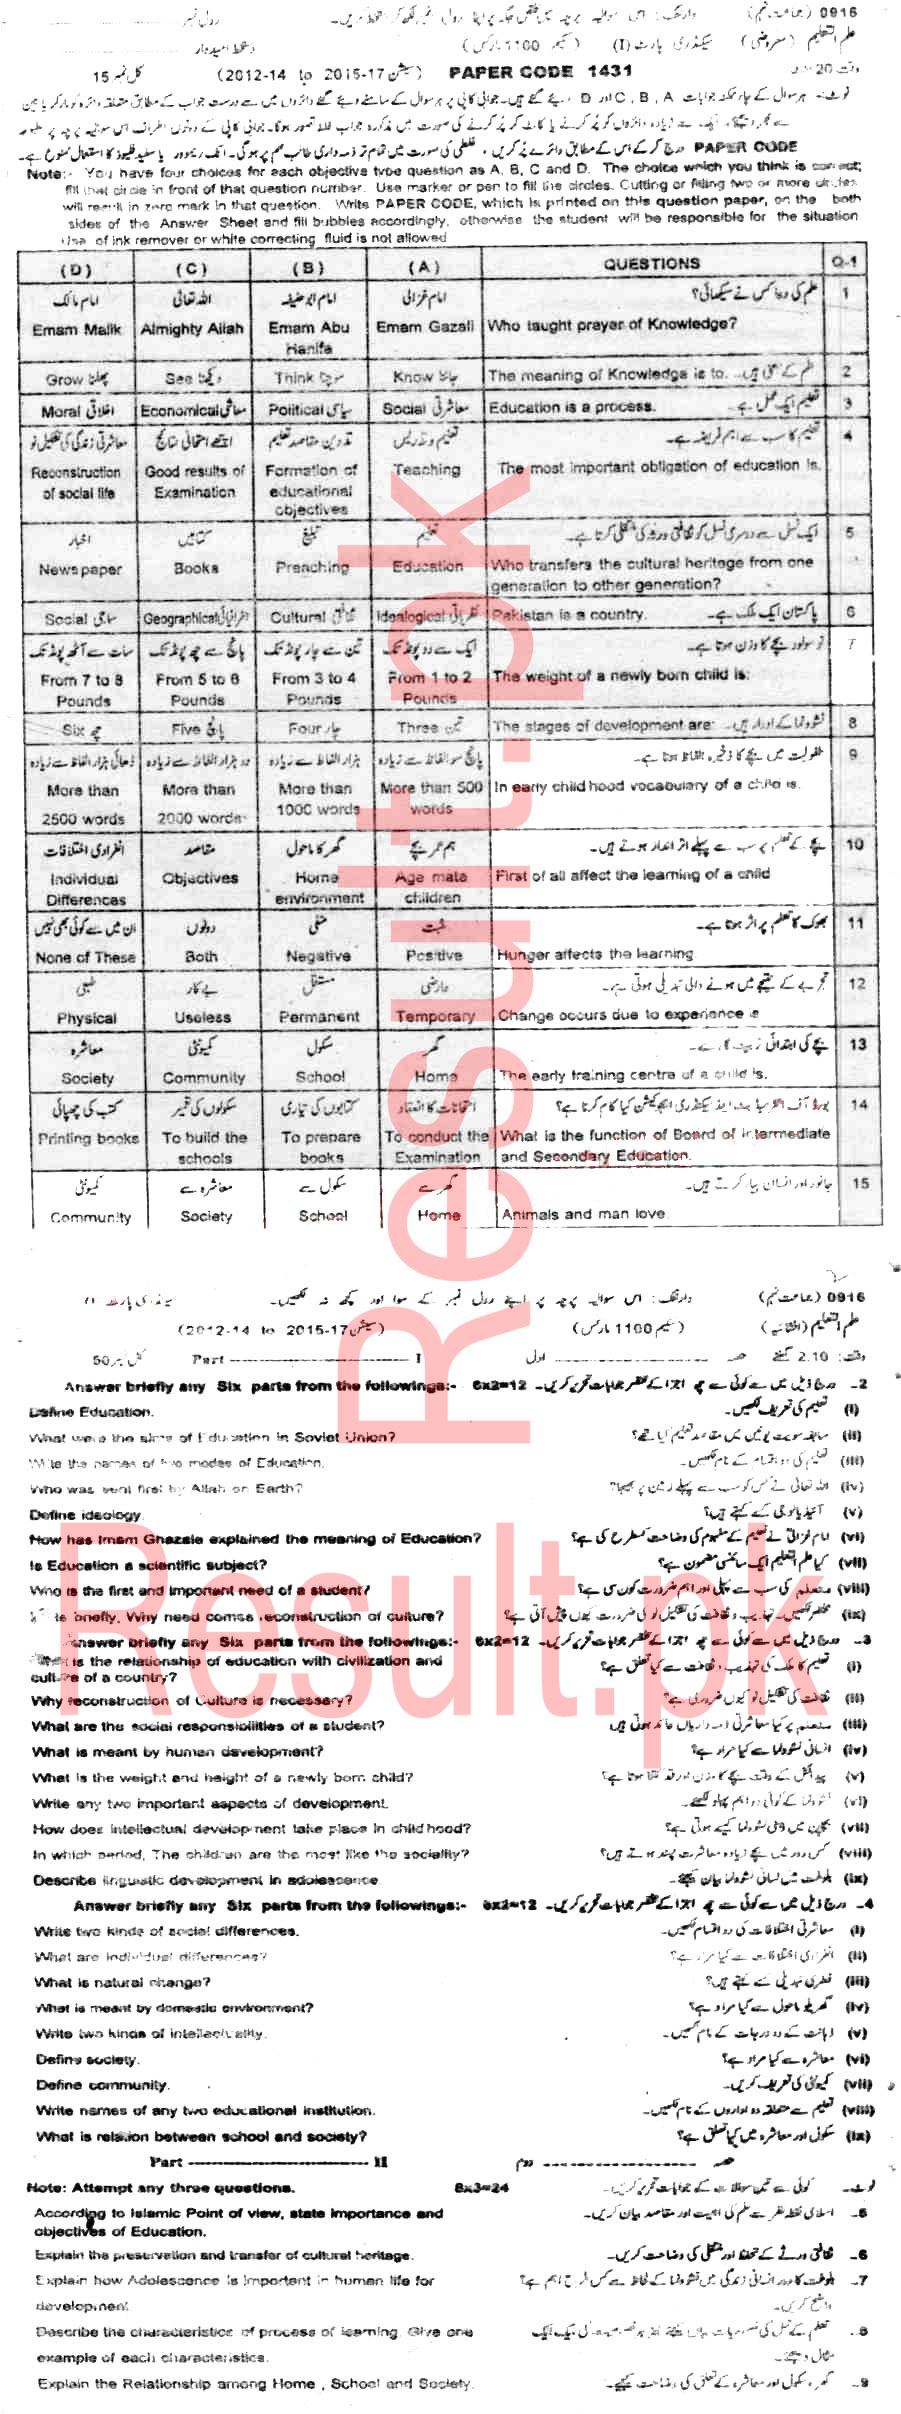 0916 (جماعت نہم) وارننگ: اس سوالیہ پرچہ پر اپنے رول نمبر رول نمبر
علم التعلیم (معروضی) سیکنڈری پارٹ (I) (سکیم 1100 مارکس) دستخط امیدوار
وقت 20 منٹ PAPER CODE 1431 (سیشن 2012-14 to 2015-17) کل نمبر 15
Note:- You have four choices for each objective type question as A, B, C and D. The choice which you think is correct;
fill that circle in front of that question number. Use marker or pen to fill the circles. Cutting or filling two or more circles
will result in zero mark in that question. Write PAPER CODE, which is printed on this question paper, on the both
sides of the Answer Sheet and fill bubbles accordingly, otherwise the student will be responsible for the situation
Use of ink remover or white correcting fluid is not allowed
(D) (C) (B) (A) QUESTIONS Q-1
امام مالک اللہ تعالٰی امام ابو حنیفہ امام غزالی علم کی دعا کس نے سیکھائی؟ 1
Emam Malik Almighty Allah Emam Abu Hanifa Emam Gazali Who taught prayer of Knowledge?
Grow پھلنا See دیکھنا Think سوچنا Know جاننا The meaning of Knowledge is to. علم کے معنی ہیں۔ 2
Moral اخلاقی Economical معاشی Political سیاسی Social معاشرتی Education is a process. تعلیم ایک عمل ہے۔ 3
معاشرتی زندگی کی تشکیل نو اچھے امتحانی نتائج تدوین مقاصد تعلیم تعلیم و تدریس تعلیم کا سب سے اہم فریضہ ہے۔ 4
Reconstruction of social life Good results of Examination Formation of educational objectives Teaching The most important obligation of education is.
اخبار کتابیں تبلیغ تعلیم ایک نسل سے دوسری نسل کو ثقافتی ورثہ کی منتقلی کرتا ہے۔ 5
News paper Books Preaching Education Who transfers the cultural heritage from one generation to other generation?
Social سماجی Geographical جغرافیائی Cultural ثقافتی Idealogical نظریاتی Pakistan is a country. پاکستان ایک ملک ہے۔ 6
سات سے آٹھ پونڈ تک پانچ سے چھ پونڈ تک تین سے چار پونڈ تک ایک سے دو پونڈ تک نومولود بچے کا وزن ہوتا ہے۔ 7
From 7 to 8 Pounds From 5 to 6 Pounds From 3 to 4 Pounds From 1 to 2 Pounds The weight of a newly born child is:
Six چھ Five پانچ Four چار Three تین The stages of development are: نشوونما کے ادوار ہیں۔ 8
ڈھائی ہزار الفاظ سے زیادہ دو ہزار الفاظ سے زیادہ ہزار الفاظ سے زیادہ پانچ سو الفاظ سے زیادہ طفولیت میں بچے کا ذخیرہ الفاظ ہوتا ہے۔ 9
More than 2500 words More than 2000 words More than 1000 words More than 500 words In early child hood vocabulary of a child is.
انفرادی اختلافات مقاصد گھر کا ماحول ہم عمر بچے بچے کے تعلم پر سب سے پہلے اثر انداز ہوتے ہیں۔ 10
Individual Differences Objectives Home environment Age mate children First of all affect the learning of a child
ان میں سے کوئی بھی نہیں دونوں منفی مثبت بھوک کا تعلم پر اثر ہوتا ہے۔ 11
None of These Both Negative Positive Hunger affects the learning
طبعی بے کار مستقل عارضی تجربے کے نتیجے میں ہونے والی تبدیلی ہوتی ہے۔ 12
Physical Useless Permanent Temporary Change occurs due to experience is
معاشرہ کمیونٹی سکول گھر بچے کی ابتدائی تربیت گاہ ہے۔ 13
Society Community School Home The early training centre of a child is.
کتب کی چھپائی سکولوں کی تعمیر کتابوں کی تیاری امتحانات کا انعقاد بورڈ آف انٹرمیڈیٹ اینڈ سیکنڈری ایجوکیشن کیا کام کرتا ہے؟ 14
Printing books To build the schools To prepare books To conduct the Examination What is the function of Board of Intermediate and Secondary Education.
کمیونٹی معاشرہ سے سکول سے گھر سے جانور اور انسان پیار کرتے ہیں۔ 15
Community Society School Home Animals and man love.
0916 (جماعت نہم) وارننگ: اس سوالیہ پرچہ پر اپنے رول نمبر کے سوا اور کچھ نہ لکھیں۔ سیکنڈری پارٹ
علم التعلیم (انشائیہ) (سکیم 1100 مارکس) (سیشن 2012-14 to 2015-17)
وقت: 2.10 گھنٹے حصہ اول Part I کل نمبر 60
Answer briefly any Six parts from the followings:- 6x2=12 درج ذیل میں سے کوئی سے چھ اجزا کے مختصر جوابات تحریر کریں۔ 2
Define Education. تعلیم کی تعریف لکھیں۔ (i)
What were the aims of Education in Soviet Union? سابقہ سویت یونین میں مقاصد تعلیم کیا تھے؟ (ii)
Write the names of two modes of Education. تعلیم کی دو اقسام کے نام لکھیں۔ (iii)
Who was sent first by Allah on Earth? اللہ تعالٰی نے کس کو سب سے پہلے زمین پر بھیجا؟ (iv)
Define ideology. آئیڈیالوجی کسے کہتے ہیں؟ (v)
How has Imam Ghazale explained the meaning of Education? امام غزالی نے تعلیم کے مفہوم کی وضاحت کسطرح کی ہے؟ (vi)
Is Education a scientific subject? کیا علم التعلیم ایک سائنسی مضمون ہے؟ (vii)
Who is the first and important need of a student? متعلم کی سب سے پہلی اور اہم ضرورت کون سی ہے؟ (viii)
briefly, Why need comes reconstruction of culture? مختصر لکھیں۔ تہذیب و ثقافت کی تشکیل نو کی ضرورت کیوں پیش آتی ہے؟ (ix)
Answer briefly any Six parts from the followings:- 6x2=12 درج ذیل میں سے کوئی سے چھ اجزا کے مختصر جوابات تحریر کریں۔ 3
What is the relationship of education with civilization and culture of a country? تعلیم کا ملک کی تہذیب و ثقافت سے کیا تعلق ہے؟ (i)
Why reconstruction of Culture is necessary? ثقافت کی تشکیل نو کیوں ضروری ہے؟ (ii)
What are the social responsibilities of a student? متعلم پر کیا معاشرتی ذمہ داریاں عائد ہوتی ہیں (iii)
What is meant by human development? انسانی نشوونما سے کیا مراد ہے؟ (iv)
What is the weight and height of a newly born child? پیدائش کے وقت بچے کا وزن اور قد کتنا ہوتا ہے؟ (v)
Write any two important aspects of development. نشوونما کے کوئی دو اہم پہلو لکھئے۔ (vi)
How does intellectual development take place in child hood? بچپن میں ذہنی نشوونما کیسے ہوتی ہے؟ (vii)
In which period, The children are the most like the sociality? کس دور میں بچے زیادہ معاشرت پسند ہوتے ہیں؟ (viii)
Describe linguistic development in adolescence. بلوغت میں لسانی نشوونما بیان کیجئے۔ (ix)
Answer briefly any Six parts from the followings:- 6x2=12 درج ذیل میں سے کوئی سے چھ اجزا کے مختصر جوابات تحریر کریں۔ 4
Write two kinds of social differences. معاشرتی اختلافات کی دو اقسام لکھیں۔ (i)
What are individual differences? انفرادی اختلافات سے کیا مراد ہے؟ (ii)
What is natural change? فطری تبدیلی کسے کہتے ہیں؟ (iii)
What is meant by domestic environment? گھریلو ماحول سے کیا مراد ہے؟ (iv)
Write two kinds of intellectuality. ذہانت کے دو درجات کے نام لکھیں۔ (v)
Define society. معاشرہ سے کیا مراد ہے؟ (vi)
Define community. کمیونٹی کی تعریف کریں۔ (vii)
Write names of any two educational institution. تعلیم سے متعلقہ دو اداروں کے نام لکھیں۔ (viii)
What is relation between school and society? سکول اور معاشرہ میں کیا تعلق ہے؟ (ix)
Part II حصہ دوم
Note: Attempt any three questions. 8x3=24 کوئی سے تین سوالات کے جوابات تحریر کریں۔ نوٹ۔
According to Islamic Point of view, state importance and objectives of Education. اسلامی نقطہ نظر سے علم کی اہمیت اور مقاصد بیان کریں۔ 5
Explain the preservation and transfer of cultural heritage. ثقافتی ورثے کے تحفظ اور منتقلی کی وضاحت کریں۔ 6
Explain how Adolescence is important in human life for development بلوغت کا دور انسانی زندگی میں نشوونما کے لحاظ سے کس طرح اہم ہے؟ واضح کریں۔ 7
Describe the characteristics of process of learning. Give one example of each characteristics. 8
Explain the Relationship among Home , School and Society. گھر، سکول اور معاشرہ کے تعلق کی وضاحت کیجئے۔ 9
Result.pk
Result.pk